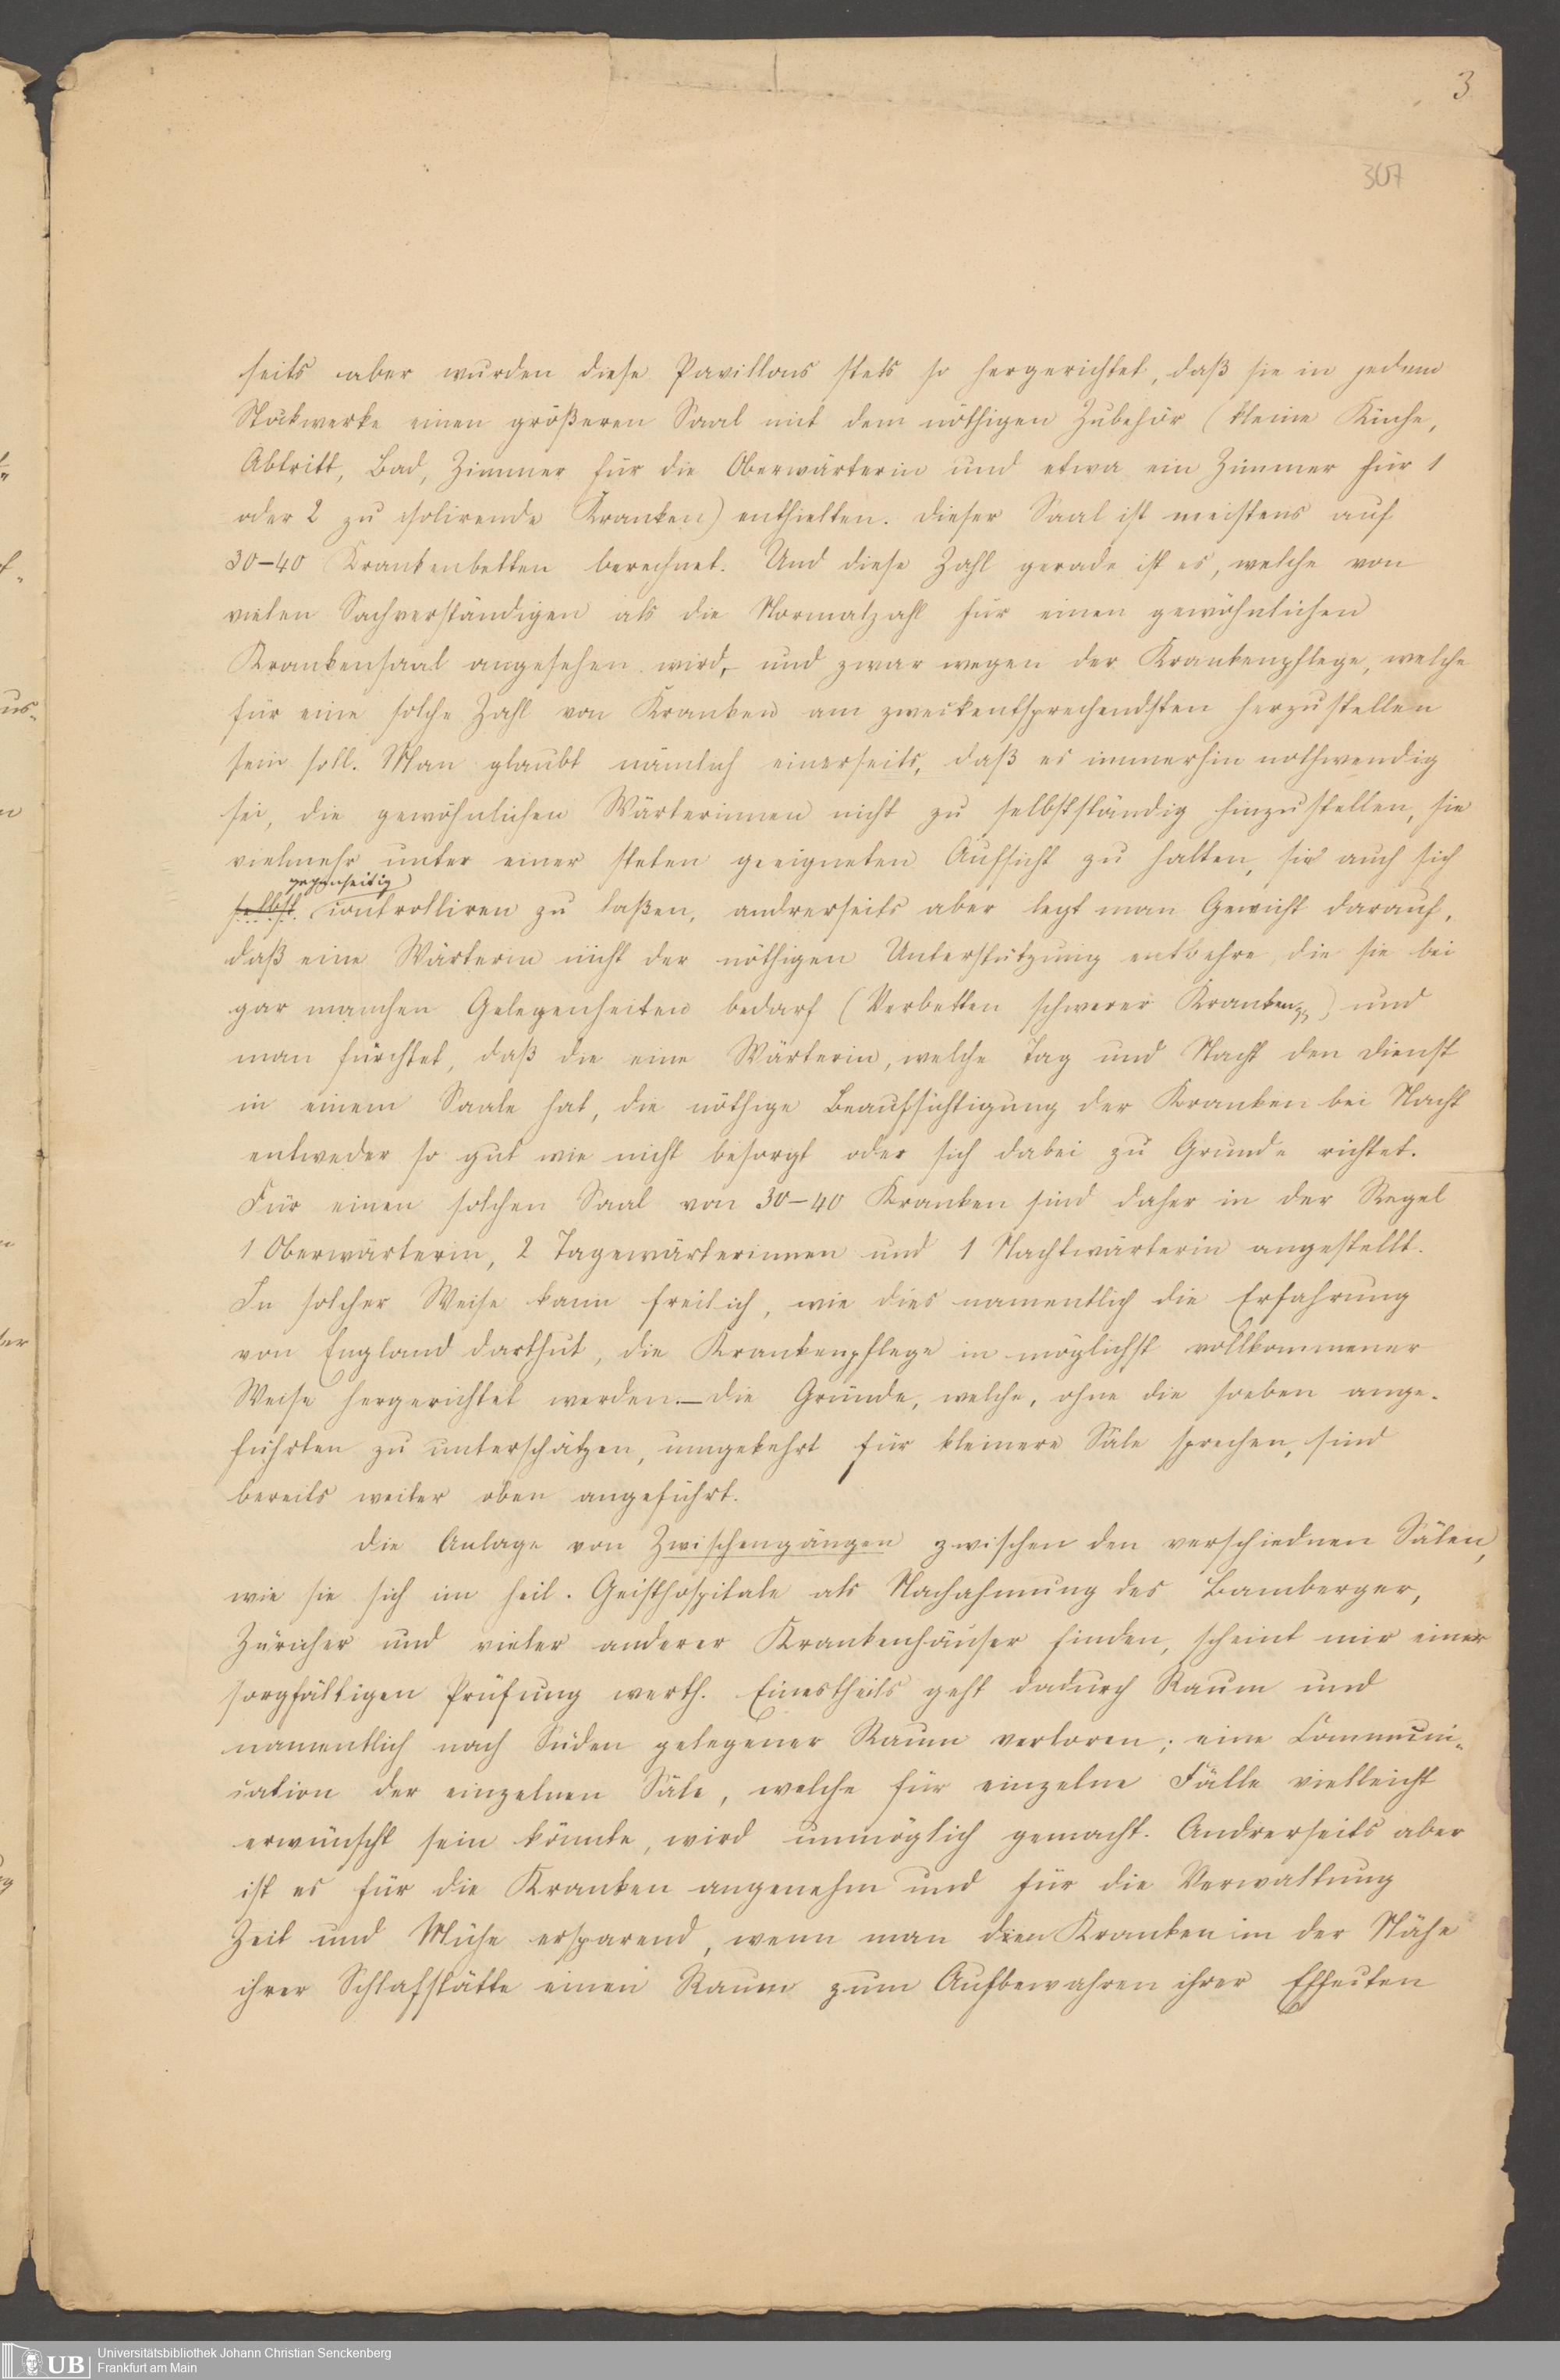 3
307
seits aber wurden diese Pavillons stets so hergerichtet, daß sie in jedem
Stockwerke einen größeren Saal mit dem nöthigen Zubehör (kleine Küche,
Abtritt, Bad, Zimmer für die Oberwärterin und etwa ein Zimmer für 1
oder 2 zu isolirende Kranken) enthielten. Dieser Saal ist meistens auf
30–40 Krankenbetten berechnet. Und diese Zahl gerade ist es, welche von
vielen Sachverständigen als die Normalzahl für einen gewöhnlichen
Krankensaal angesehen wird, und zwar wegen der Krankenpflege, welche
für eine solche Zahl von Kranken am zweckentsprechendsten herzustellen
sein soll. Man glaubt nämlich einerseits, daß es immerhin nothwendig
sei, die gewöhnlichen Wärterinnen nicht zu selbstständig hinzustellen, sie
vielmehr unter einer steten geeigneten Aufsicht zu halten, sie auch sich
gegenseitig
selbst controlliren zu laßen, andrerseits aber legt man Gewicht darauf,
daß eine Wärterin nicht der nöthigen Unterstützung entbehre, die sie bei
gar manchen Gelegenheiten bedarf (Verbetten schwerer Kranken) und
man fürchtet, daß die eine Wärterin, welche Tag und Nacht den Dienst
in einem Saale hat, die nöthige Beaufsichtigung der Kranken bei Nacht
entweder so gut wie nicht besorgt oder sich dabei zu Grunde richtet.
Für einen solchen Saal von 30–40 Kranken sind daher in der Regel
1 Oberwärterin, 2 Tagewärterinnen und 1 Nachtwärterin angestellt.
In solcher Weise kann freilich, wie dies namentlich die Erfahrung
von England darthut, die Krankenpflege in möglichst vollkommener
Weise hergerichtet werden.— Die Gründe, welche, ohne die soeben ange-
führten zu unterschätzen, umgekehrt für kleinere Säle sprechen, sind
bereits weiter oben angeführt.
Die Anlage von Zwischengängen zwischen den verschiednen Sälen,
wie sie sich im heil. Geisthospitale als Nachahmung des Bamberger,
Züricher und vieler anderer Krankenhäuser finden, scheint mir einer
sorgfältigen Prüfung werth. Einestheils geht dadurch Raum und
namentlich nach Süden gelegener Raum verloren; eine Communi-
cation der einzelnen Säle, welche für einzelne Fälle vielleicht
erwünscht sein könnte, wird unmöglich gemacht. Andrerseits aber
ist es für die Kranken angenehm und für die Verwaltung
Zeit und Mühe ersparend, wenn man den Kranken in der Nähe
ihrer Schlafstätte einen Raum zum Aufbewahren ihrer Effecten
UB
Universitätsbibliothek Johann Christian Senckenberg
Frankfurt am Main